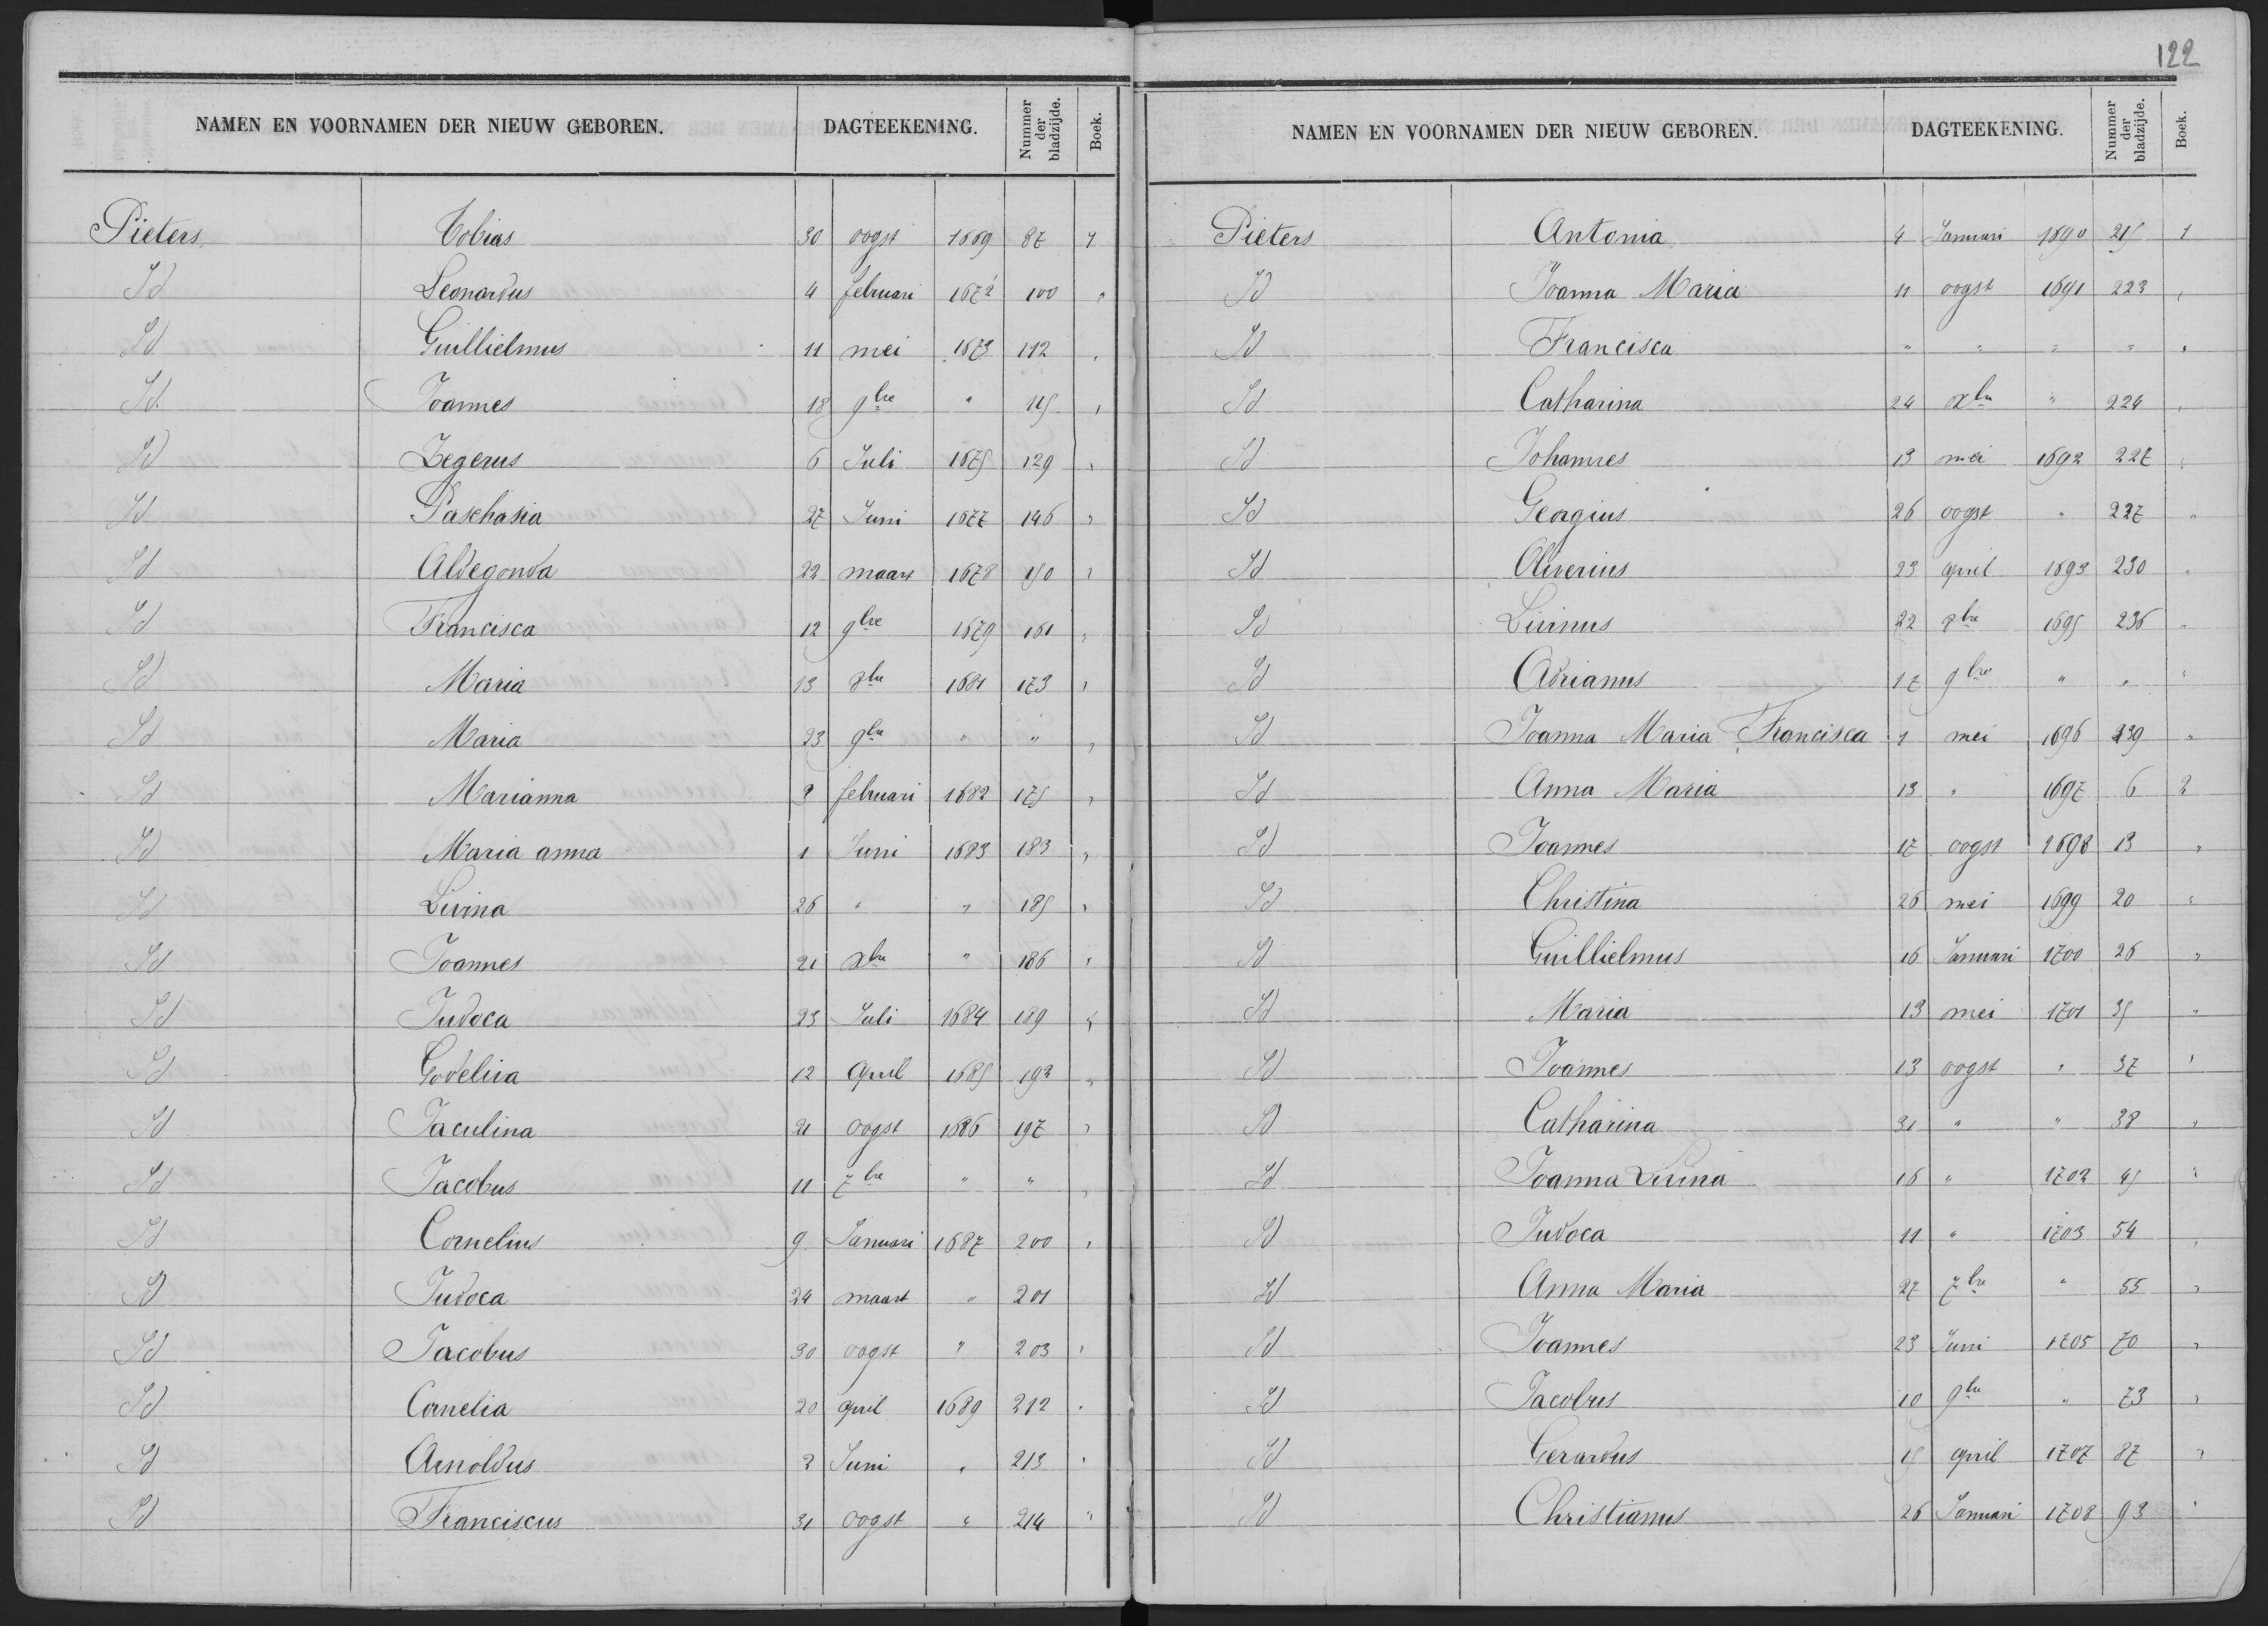 122
NAMEN EN VOORNAMEN DER NIEUW GEBOREN. DAGTEEKENING. Nummer der bladzijde. Boek.
Pieters Tobias 30 oogst 1669 87 1
Id Leonardus 4 februari 1672 100 "
Id Guillielmus 11 mei 1673 112 "
Id Joannes 18 9bre " 115 "
Id Zegerus 6 Juli 1675 129 "
Id Paschasia 27 Juni 1677 146 "
Id Aldegonda 22 maart 1678 150 "
Id Francisca 12 9bre 1679 161 "
Id Maria 13 8bre 1681 173 "
Id Maria 23 9bre " " "
Id Marianna 3 februari 1682 175 "
Id Maria anna 1 Juni 1683 183 "
Id Livina 26 " " 185 "
Id Joannes 21 xbre " 186 "
Id Judoca 23 Juli 1684 189 "
Id Godeliva 12 April 1685 192 "
Id Jaculina 21 oogst 1686 197 "
Id Jacobus 11 7bre " " "
Id Cornelius 9 Januari 1687 200 "
Id Judoca 24 maart " 201
Id Jacobus 30 oogst " 203 "
Id Cornelia 20 april 1689 212 "
Id Arnoldus 2 Juni " 213 "
Id Franciscus 31 oogst " 214 "
NAMEN EN VOORNAMEN DER NIEUW GEBOREN. DAGTEEKENING. Nummer der bladzijde. Boek.
Pieters Antonia 4 Januari 1690 215 1
Id Joanna Maria 11 oogst 1691 223 "
Id Francisca " " " " "
Id Catharina 24 xbre " 224 "
Id Johannes 13 mei 1692 227 "
Id Georgius 26 oogst " 227 "
Id Oliverius 23 april 1693 230 "
Id Livinus 22 8bre 1695 236 "
Id Adrianus 17 9bre " " "
Id Joanna Maria Francisca 1 mei 1696 239 "
Id Anna Maria 13 " 1697 6 2
Id Joannes 17 oogst 1698 13 "
Id Christina 26 mei 1699 20 "
Id Guillielmus 16 Januari 1700 26 "
Id Maria 13 mei 1701 35 "
Id Joannes 13 oogst " 37 "
Id Catharina 31 " " 38 "
Id Joanna Livina 16 " 1702 45 "
Id Judoca 11 " 1703 54 "
Id Anna Maria 27 7bre " 55 "
Id Joannes 23 Juni 1705 70 "
Id Jacobus 10 9bre " 73 "
Id Gerardus 15 april 1707 87 "
Id Christianus 26 Januari 1708 93 "